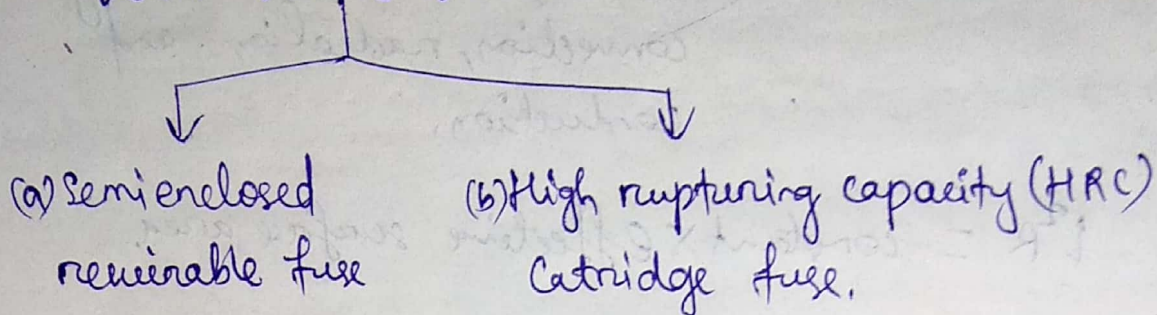 (a) Semi enclosed
rewirable fuse
(b) High rupturing capacity (HRC)
Catridge fuse.